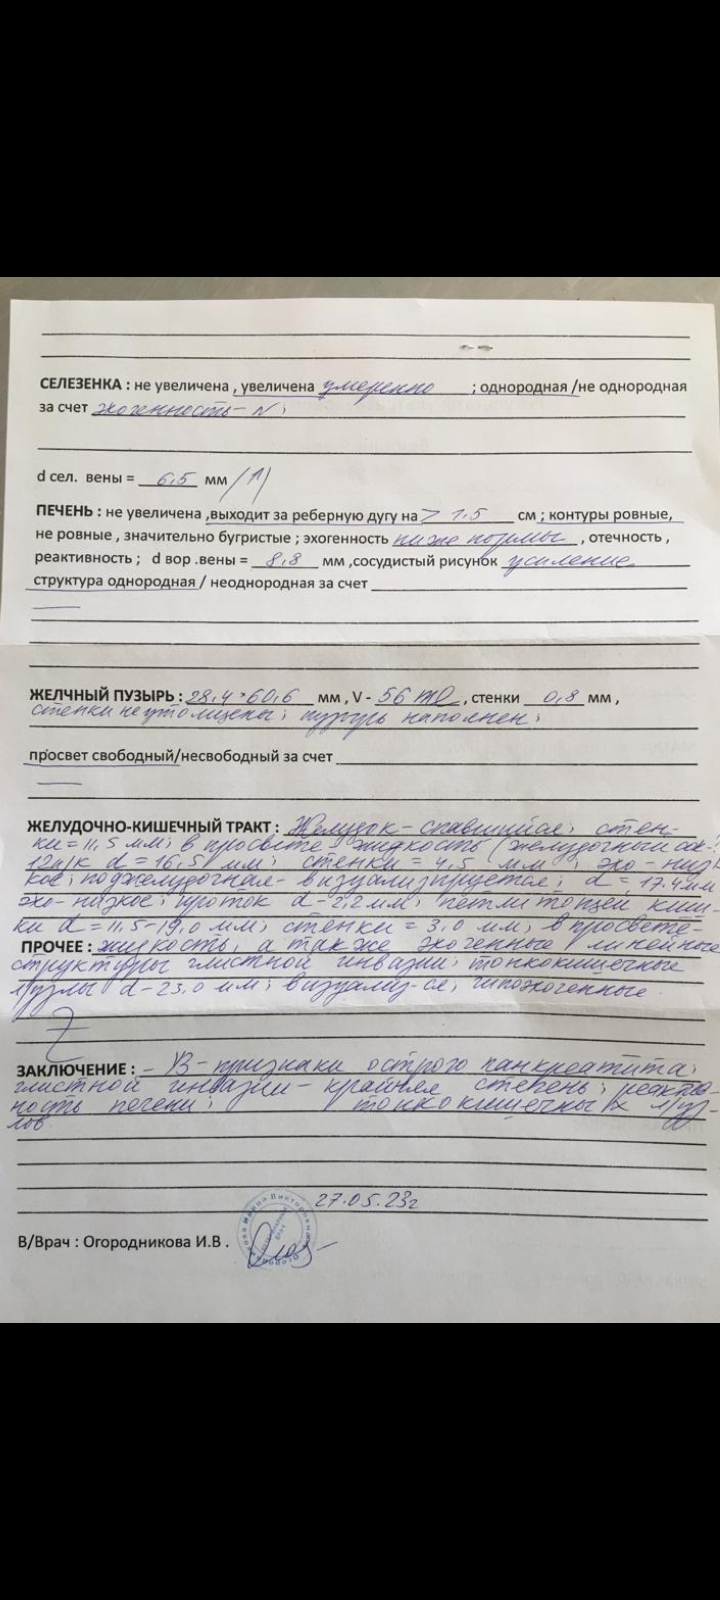 СЕЛЕЗЕНКА : не увеличена , увеличена умеренно ; однородная /не однородная
за счет эхогенность - N ;
d сел. вены = 6,5 мм /↑/
ПЕЧЕНЬ : не увеличена ,выходит за реберную дугу на > 1.5 см ; контуры ровные,
не ровные , значительно бугристые ; эхогенность ниже нормы , отечность ,
реактивность ; d вор .вены = 8,8 мм ,сосудистый рисунок усиление
структура однородная / неоднородная за счет
ЖЕЛЧНЫЙ ПУЗЫРЬ : 28,4 × 60,6 мм , V - 56 ml , стенки 0,8 мм ,
стенки не утолщены ; пузырь наполнен ;
просвет свободный/несвободный за счет
ЖЕЛУДОЧНО-КИШЕЧНЫЙ ТРАКТ : Желудок - спавшийся ; стен-
ки = 11,5 мм ; в просвете - жидкость (желудочный
12п/к d = 16,5 мм ; стенки = 4,5 мм ; эхо - низ
кое ; поджелудочная - визуализируется ; d = 17.4 мм
эхо - низкое ; проток d - 2,2 мм ; петли тощей киш-
ки d = 11,5 - 19,0 мм ; стенки = 3,0 мм ; в просвете -
ПРОЧЕЕ : жидкость, а также эхогенные линейные
структуры глистной инвазии ; тонкокишечные
л/узлы d - 23,0 мм ; визуализ-ся ; гипоэхогенные .
ЗАКЛЮЧЕНИЕ : - УЗ - признаки острого панкреатита ;
глистной инвазии - крайняя степень ; реактив-
ность печени ; тонкокишечных л/уз-
лов
27.05.23г
В/Врач : Огородникова И.В .